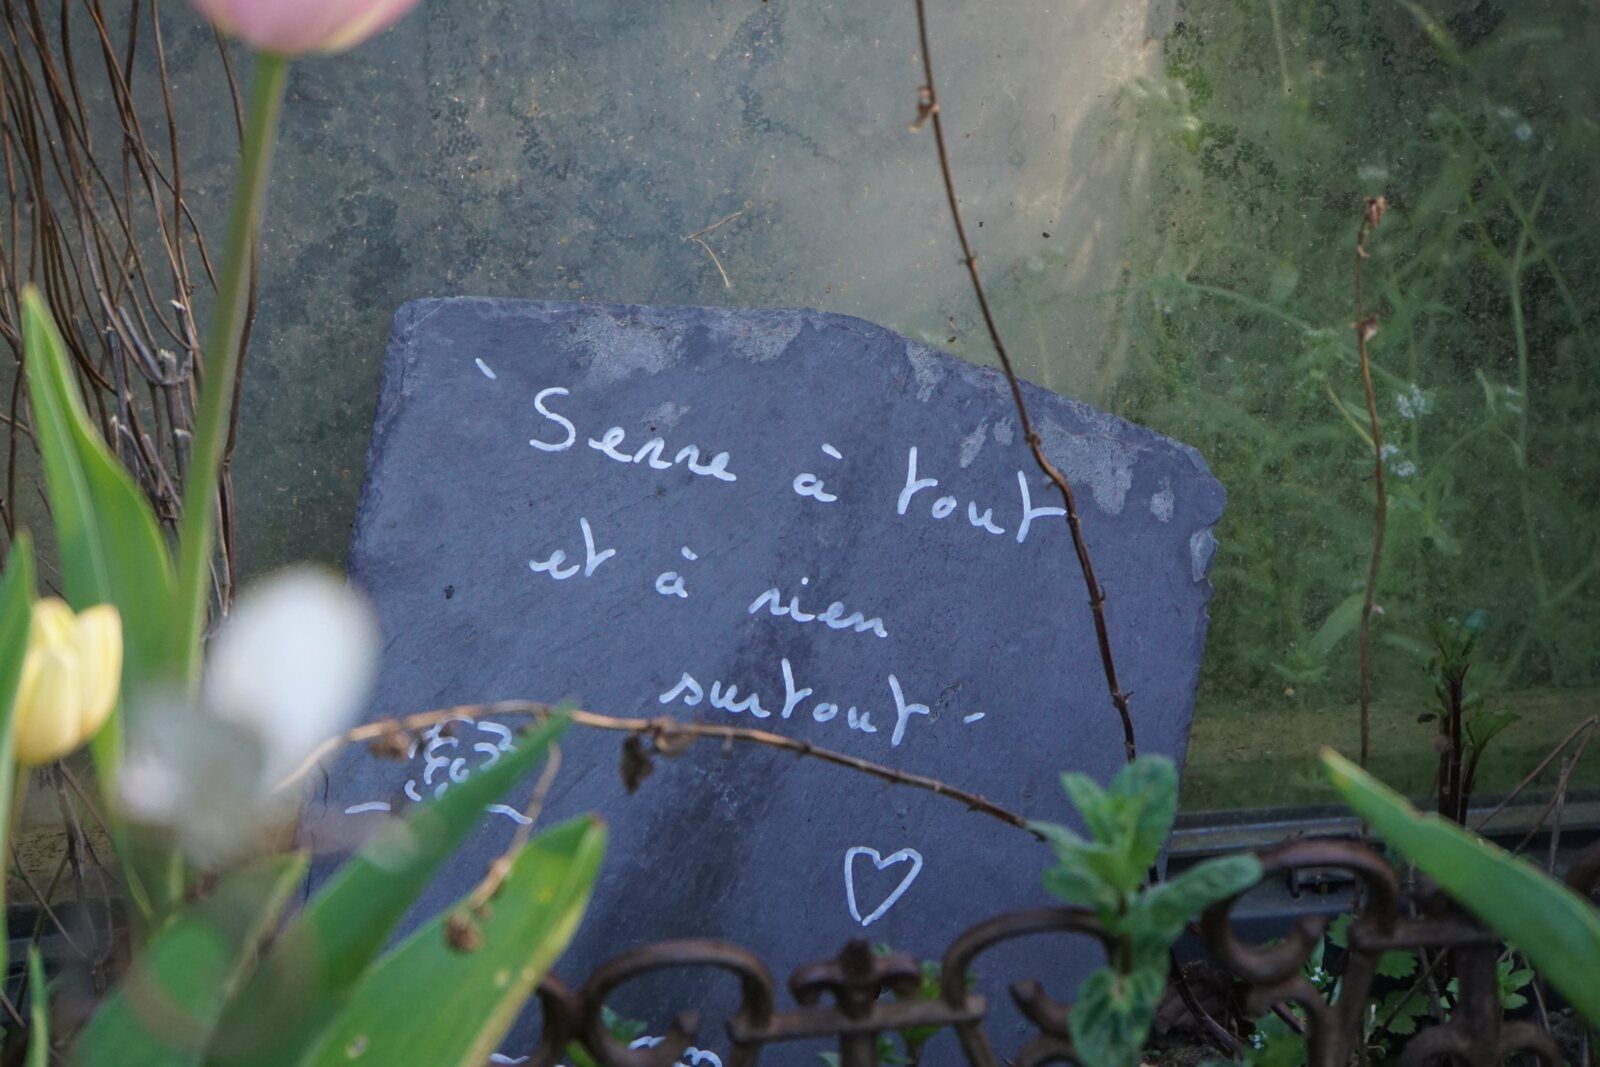 Serre à tout
et à rien
surtout -